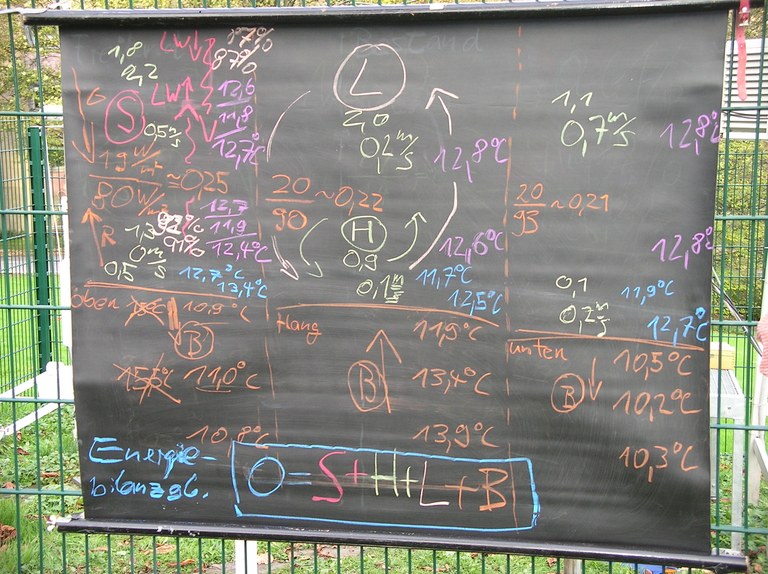 1,8
2,2
LW↓
LW↑
87%
12,6
11,8
12,7°C
S
G
0,5 m/s
19 W/m²
80 W/m²
≈0,25
R
1,3
0 m/s
0,5
91%
12,7
11,9
12,4°C
12,7°C
13,4°C
oben
10,9°C
B
11,0°C
10,8°C
L
2,0
0,2 m/s
12,8°C
20/90 ~0,22
H
0,9
0,1 m/s
12,6°C
11,7°C
12,5°C
Hang
11,9°C
B
13,4°C
13,9°C
1,1
0,7 m/s
12,8°C
20/93 ~0,21
12,8°C
0,1
0,2 m/s
11,9°C
12,7°C
unten
10,5°C
B
10,2°C
10,3°C
Energie-
bilanzgl.
0=S+H+L+B